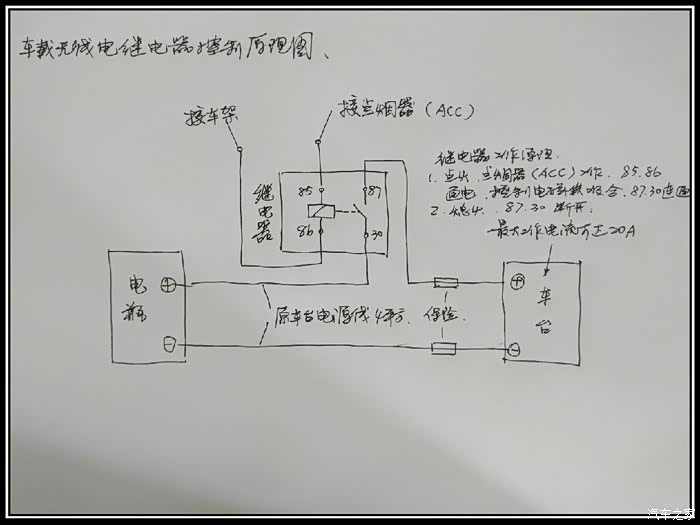 车载无线电继电器控制原理图、
接车架
接点烟器（ACC）
继电器
85
87
86
30
继电器工作原理
1. 点火、点烟器（ACC）工作、85.86
通电、控制电磁铁吸合、87.30连通
2. 熄火、87.30断开.
最大工作电流可达20A
电瓶
+
-
原车台电源线4平方.
保险.
车台
+
-
汽车之家